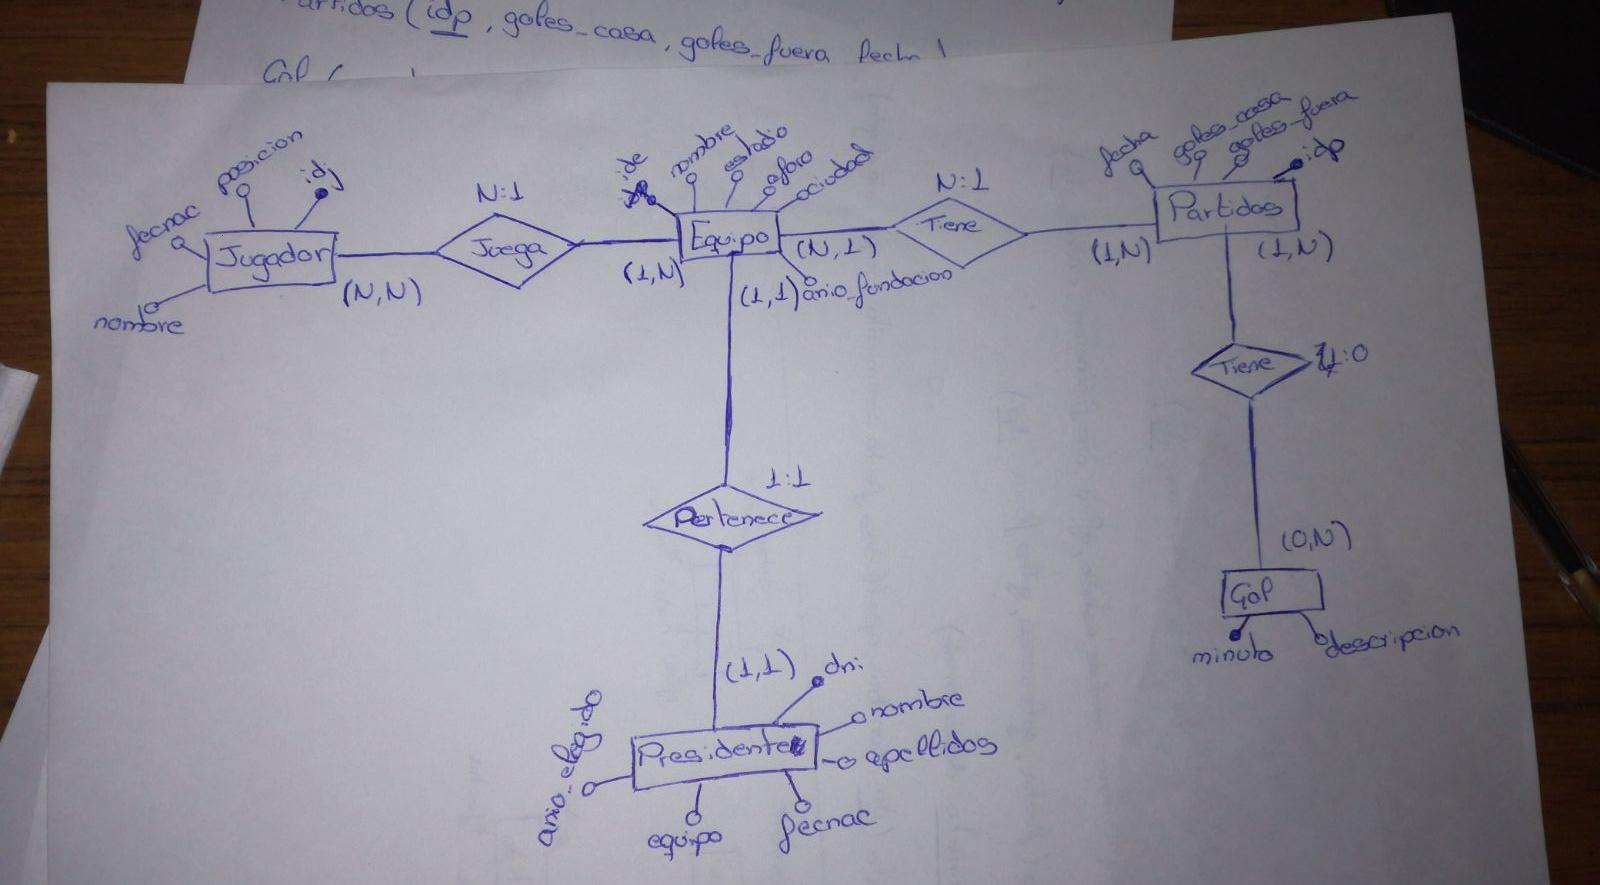 Partidos (idp, goles_casa, goles_fuera, fecha)
Gol (
fecnac
posicion
idj
nombre
Jugador
(N,N)
N:1
Juega
(1,N)
ide
nombre
estadio
aforo
ciudad
Equipo
(N,1)
(1,1)
anio_fundacion
N:1
Tiene
(1,N)
fecha
goles_casa
goles_fuera
idp
Partidos
(1,N)
Tiene
1:0
(0,N)
Gol
minuto
descripcion
1:1
Pertenece
(1,1)
dni
nombre
apellidos
Presidente
anio_elegido
equipo
fecnac